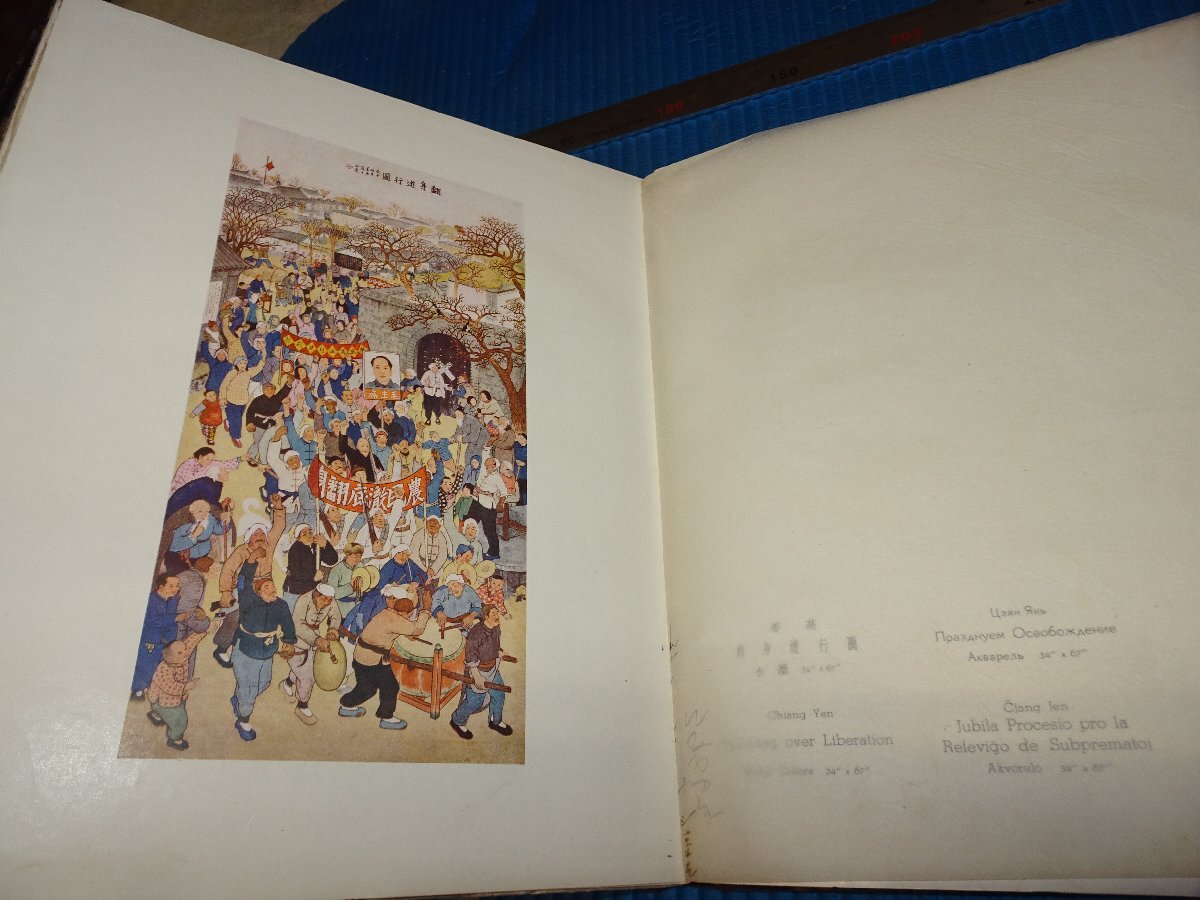 50 100 150 200
翻身遊行圖
毛主席
農民徹底翻身
身遊行圖
水 34" x 67"
Chiang Yen
over Liberation
Water Colors 34" x 67"
Цзян Янь
Празднуем Освобождение
Акварель 34" x 67"
Ĉiang Ien
Jubila Procesio pro la
Releviĝo de Subprematoj
Akvorelo 34" x 67"